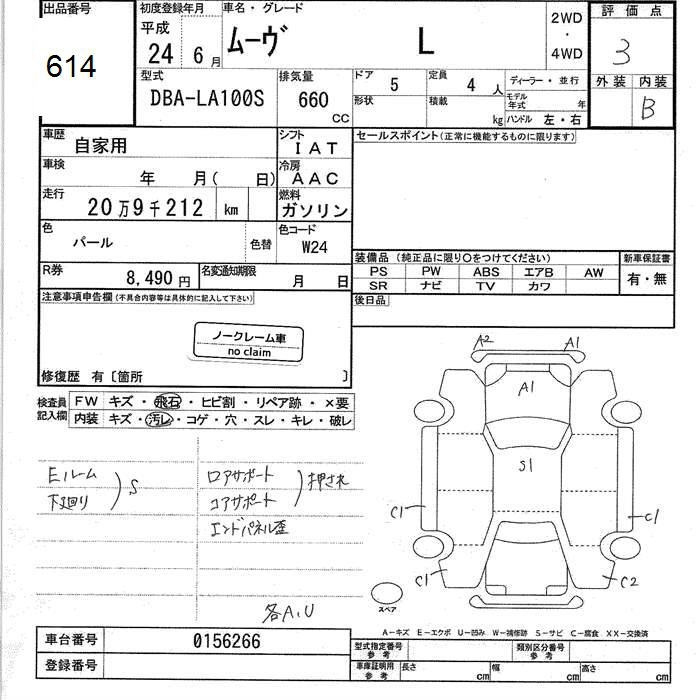 出品番号
614
初度登録年月
平成
24 6 月
車名・グレード
ムーヴ L
2WD
・
4WD
評価点
3
外装 内装
B
型式
DBA-LA100S
排気量
660
CC
ドア
5
定員
4 人
形状
積載
kg
ディーラー・並行
モデル年式 年
ハンドル 左・右
車歴
自家用
シフト
IAT
車検
年 月( 日)
冷房
AAC
走行
20万9千212 km
燃料
ガソリン
色
パール
色替
色コード
W24
R券
8,490 円
名変通知期限
月 日
セールスポイント(正常に機能するものに限ります)
装備品 (純正品に限り〇をつけてください)
PS PW ABS エアB AW
SR ナビ TV カワ
新車保証書
有・無
後日品
注意事項申告欄(不具合内容等は具体的に記入して下さい)
ノークレーム車
no claim
修復歴 有〔箇所 〕
検査員
記入欄
FW キズ・飛石・ヒビ割・リペア跡・×要
内装 キズ・汚レ・コゲ・穴・スレ・キレ・破レ
Eルーム
下廻り
S
ロアサポート
コアサポート
押され
エンドパネル歪
各A,U
A2 A1
A1
S1
C1 C1
C1 C2
スペア
A-キズ E-エクボ U-凹み W-補修跡 S-サビ C-腐食 XX-交換済
車台番号 0156266
登録番号
型式指定番号
参考
類別区分番号
参考
車庫証明用
参考
長さ cm 幅 cm 高さ cm